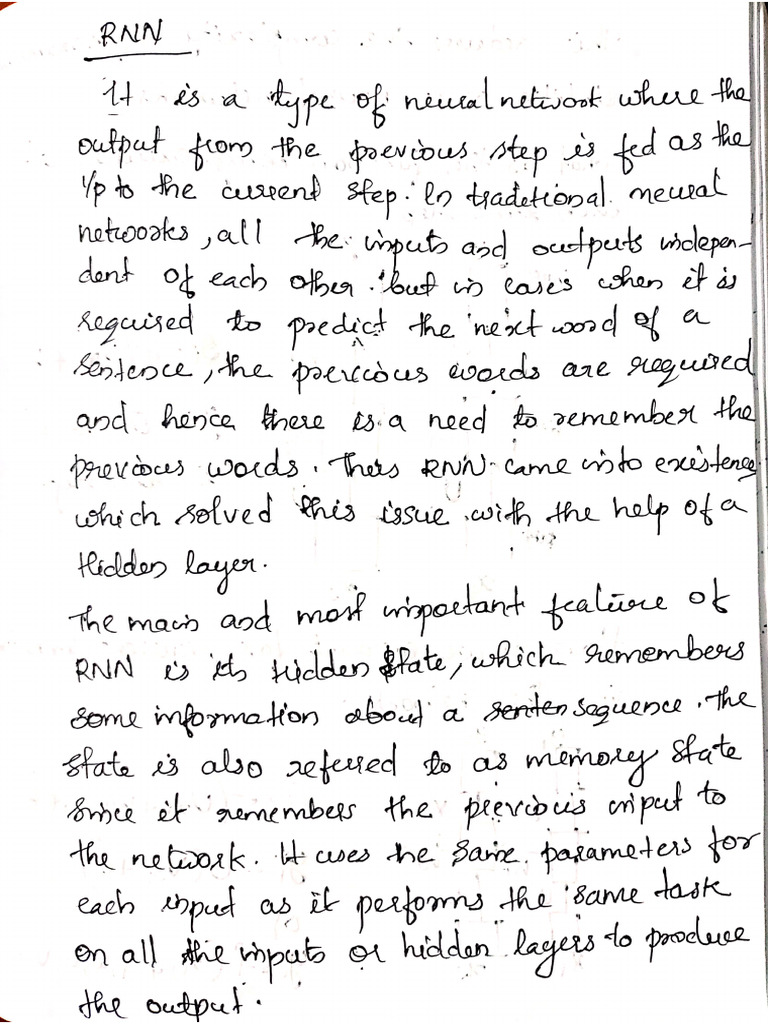 RNN
It is a type of neural network where the
output from the previous step is fed as the
i/p to the current step. In traditional neural
networks, all the inputs and outputs indepen-
dent of each other. but in cases when it is
required to predict the next word of a
sentence, the previous words are required
and hence there is a need to remember the
previous words. Thus RNN came into existence
which solved this issue with the help of a
Hidden layer.
The main and most important feature of
RNN is its Hidden State, which remembers
some information about a senten sequence. The
state is also referred to as memory state
since it remembers the previous input to
the network. It uses he same parameters for
each input as it performs the same task
on all the inputs or hidden layers to produce
the output.